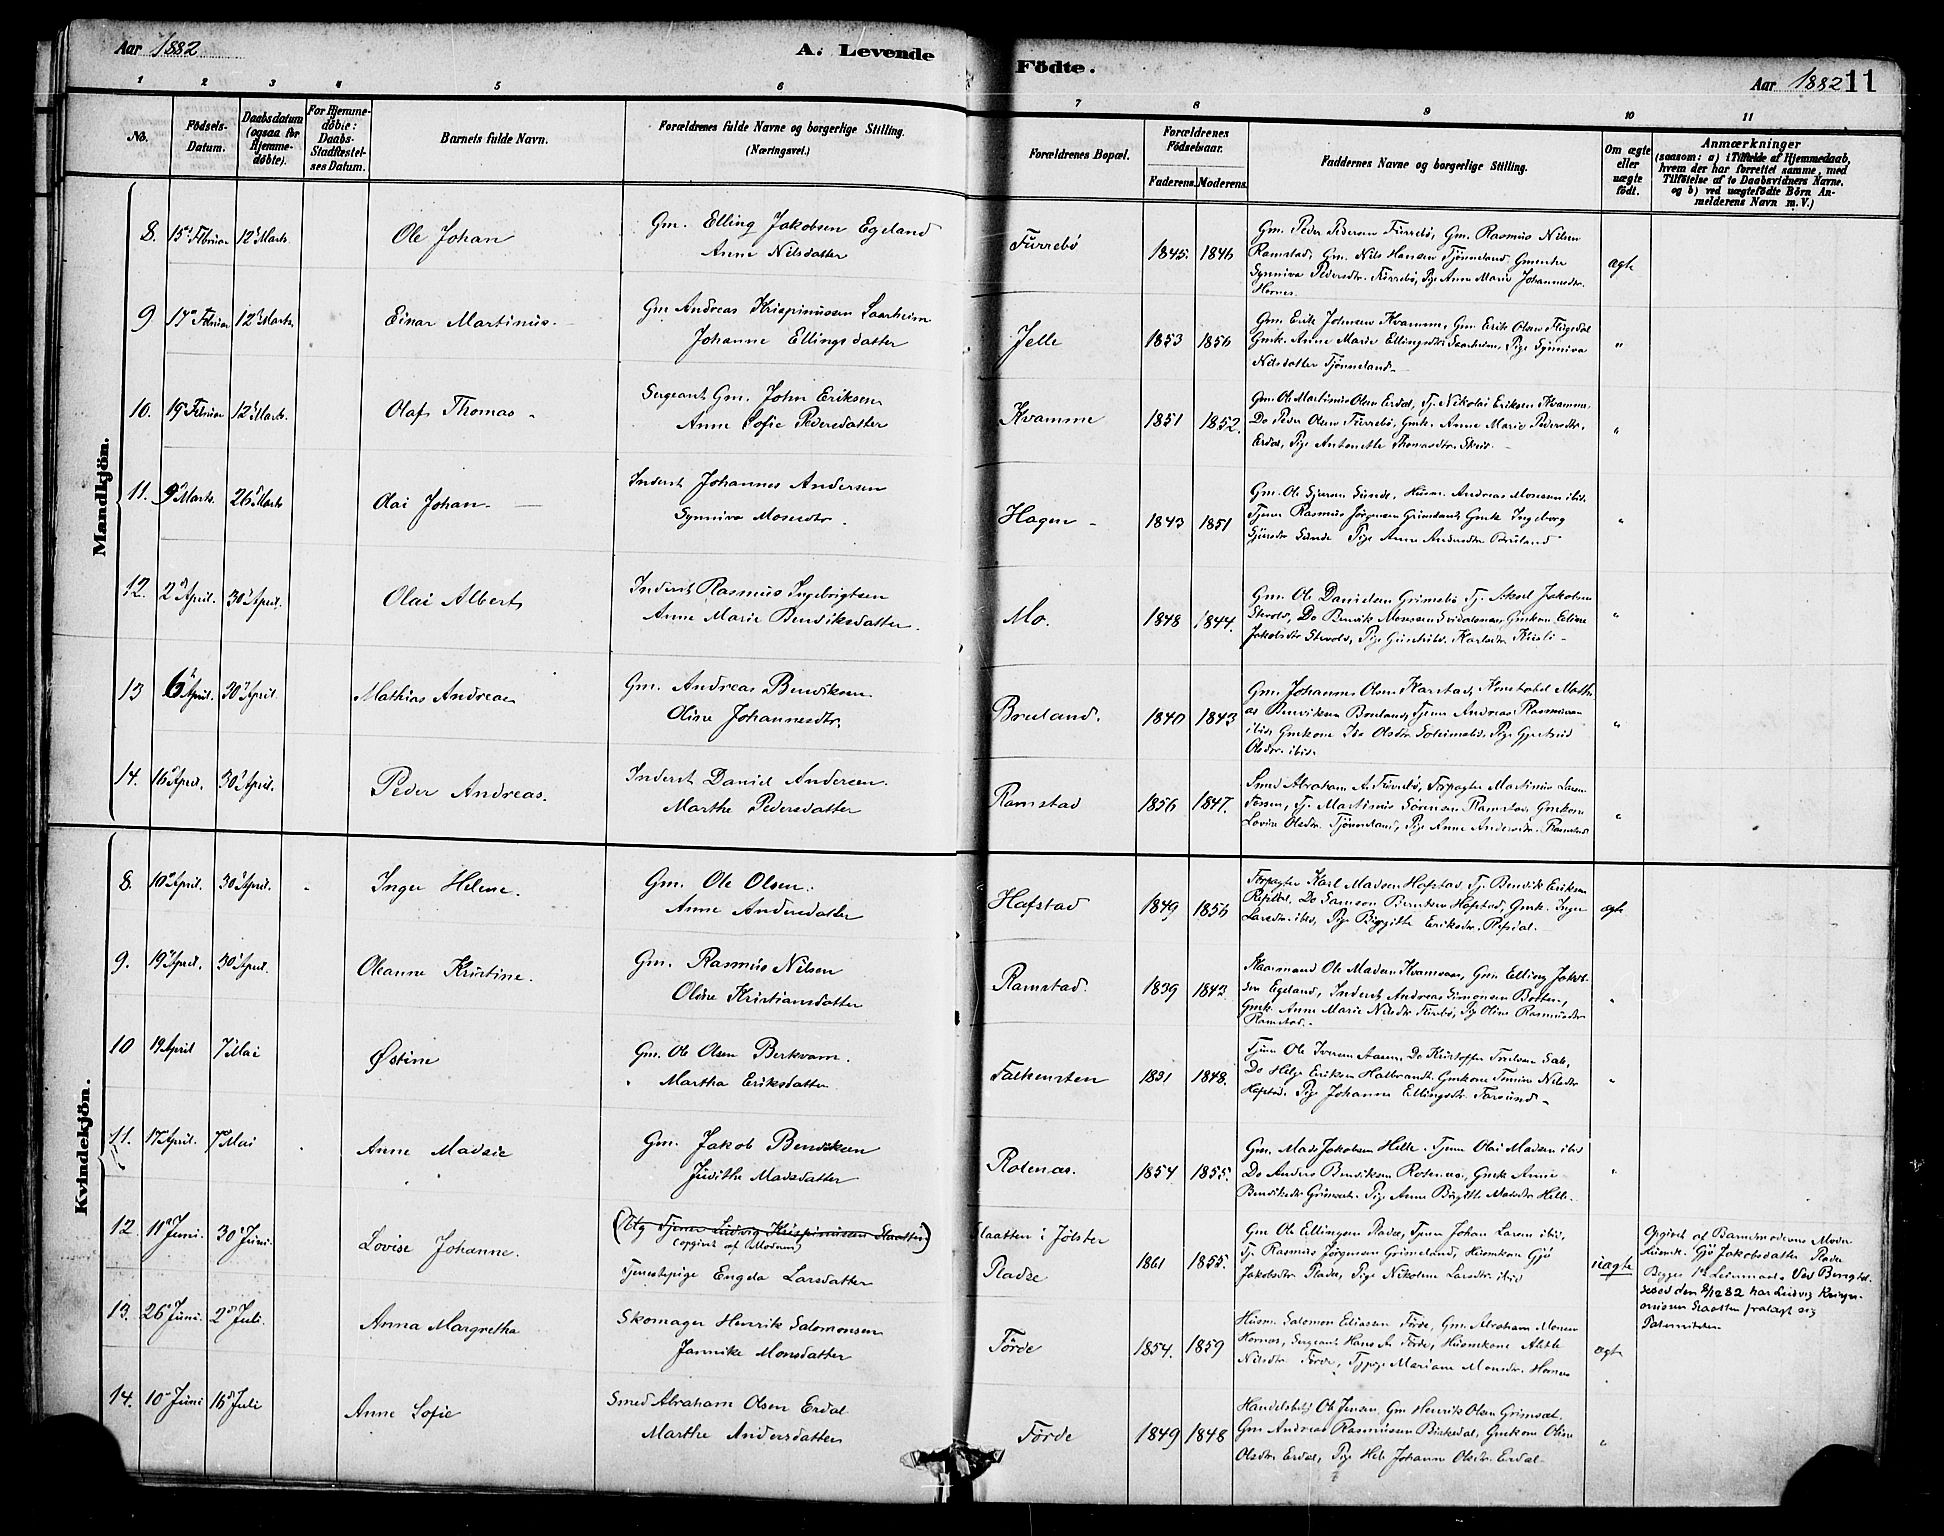 Aar 1882
A. Levende
Födte.
Aar 1882 11
1 2 3 4 5 6 7 8 9 10 11
No.
Födsels-
Datum.
Daabsdatum
(ogsaa for
Hjemme-
döbte).
For Hjemme-
döbte:
Daabs-
Stadfæstel-
ses Datum.
Barnets fulde Navn.
Forældrenes fulde Navne og borgerlige Stilling.
(Næringsvei.)
Forældrenes Bopæl.
Forældrenes
Födselsaar.
Faderens. Moderens.
Faddernes Navne og borgerlige Stilling.
Om ægte
eller
uægte
födt.
Anmærkninger
(saasom: a) i Tilfælde af Hjemmedaab,
hvem der har forrettet samme, med
Tilföielse af to Daabsvidners Navne,
og b) ved uægtefödte Börn An-
melderens Navn m. V.)
Mandkjön.
8. 15 Februar 12 Marts. Ole Johan
Gm. Elling Jakobsen Egeland
Anne Nilsdatter
Furrebö 1845. 1846
Gm. Peder Pedersen Furrebö, Gm. Rasmus Nilsen
Ramstad, Gm. Nils Hansen Tjönneland,
Synniva Pedersdtr. Furrebö, Pige Anne Marie Johannesdtr.
Hornes.
ægte
9 17 Februar 12 Marts. Einar Martinus.
Gm Andreas Krispinussen Saarheim
Johanne Ellingsdatter
Jelle 1853 1856
Gm. Erik Johnsen Kvamme, Gm. Erik Olsen
Gmk. Anne Marie Ellingsdtr Saarheim, Pige Synniva
Nilsdatter Tjönneland.
"
10. 19 Februar 12 Marts. Olaf Thomas
Sergeant Gm. John Eriksen
Anne Sofie Pedersdatter
Kvamme 1851 1852.
Gm. Ole Martinus Olsen Erdal, Tj. Nikolai Eriksen Kvamme
Do Peder Olsen Furrebö, Gmk. Anne Marie Pedersdtr.
Erdal, Pige Antonette Thomasdtr.
"
11. 9 Marts. 26 Marts Olai Johan.
Inderst Johannes Andersen
Synniva Monsdtr.
Hagen 1843 1851
Gm. Ole Sjursen Sunde, Husm. Andreas Monsen ibid.
Tjener Rasmus Jörgensen Grimeland, Gmk Ingeborg
Sjursdtr Sunde Pige Anne Andersdtr Bruland
"
12. 2 April. 30 April. Olai Albert
Inderst Rasmus Ingebrigtsen
Anne Marie Bendiksdatter.
Mo. 1848 1844.
Gm. Ole Danielsen Grimsbö Tj. Jakobsen
Do Bendik Monssen Gmkone Eline
Jakobsdtr Pige Gunhild Karlsdtr
"
13 6 April. 30 April. Mathias Andreas
Gm. Andreas Bendiksen
Oline Johannesdtr.
Bruland. 1840 1843
Gm Johannes Olsen Karstad, Mathi-
as Bendiksen Bruland, Tjener Andreas Rasmussen
ibid, Gmkone Ida Olsdtr Solheim Pige Gjertrud
Olsdtr. ibid.
"
14. 16 April. 30 April. Peder Andreas.
Inderst Daniel Andersen.
Marthe Pedersdatter
Ramstad 1856 1847.
Smed Abraham A. Furrebö, Forpagter Martinus Larsen
Tj. Martinus Sörensen Ramstad, Gmkone
Lovise Olsdtr. Tjönneland, Pige Anne Andersdtr. Ramstad
"
Kvindekjön.
8. 10 April. 30 April. Inger Helene.
Gm. Ole Olsen.
Anne Andersdatter
Hafstad 1849 1856
Forpagter Karl Madsen Hafstad Tj. Bendik Eriksen
Refsdal, Do Samson Berntsen Hafstad, Gmk. Inger
Larsdtr. ibid, Pige Birgitte Eriksdtr. Refsdal.
ægte
9. 19 April. 30 April. Oleanne Kristine.
Gm. Rasmus Nilsen
Oline Kristiansdatter
Ramstad. 1839 1843
Ole Madsen Kvamsaas, Gm Elling Jakob-
sen Egeland, Inderst Andreas Simonsen Botten,
Gmk. Anne Marie Nilsdtr Furrebö, Pige Oline Rasmusdtr
Ramstad.
"
10 19 April 7 Mai Østine
Gm. Ole Olsen Berkvam.
Martha Eriksdatter
Falkensten 1831 1848.
Tjener Ole Iversen Aasen, Do Kristoffer
Do Helje Eriksen Halbrandt, Gmkone Nilsdtr
Hafstad, Pige Johanne Ellingsdtr. Farsund
"
11. 17 April. 7 Mai Anne Madsie
Gm. Jakob Bendiksen
Judithe Madsdatter
Rotenæs. 1854 1855.
Gm. Mads Jakobsen Helle. Tjener Olai Madsen ibid
Do Anders Bendiksen Rotenæs, Gmk Anne
Bendiksdtr Grimset. Pige Anne Birgitte Madsdtr Helle.
"
12. 11 Juni. 30 Juni. Lovise Johanne.
(Ug Tjener Ludvig Krispinussen Slaatten)
(opgivet af Moderen)
Tjenestepige Engda Larsdatter
Slaatten i Jölster
Pladse 1861 1855.
Gm Ole Ellingsen Pladse, Tjener Johan Larsen ibid,
Tj. Rasmus Jörgensen Grimeland, Huskone Gjö
Jakobsdtr. Pladse, Pige Nikoline Larsdtr ibid
uægte
Opgivet af Barnemoderens Moder
Gjö Jakobsdatter Pladse
Ved
den 8/12 82 har Ludvig Krispi-
nussen Slaatten fralagt sig
Paterniteten
13. 26 Juni. 2 Juli. Anna Margretha
Skomager Henrik Salomonsen
Jannike Monsdatter
Förde 1854. 1859
Husm. Salomon Eliassen Förde, Gm. Abraham Monsen
Hornes, Sergeant Hans A. Förde, Huskone Alette
Nilsdtr Förde, Mariane Monsdtr. Hornes
ægte
14. 10 Juni 16 Juli Anne Sofie
Smed Abraham Olsen Erdal
Marthe Andersdatter
Förde 1849 1848
Ole Jensen, Gm Henrik Olsen Grimset.
Gm Andreas Rasmussen Birkedal, Gmkone Oline
Olsdtr. Erdal, Pige Johanne Olsdtr. Erdal.
"